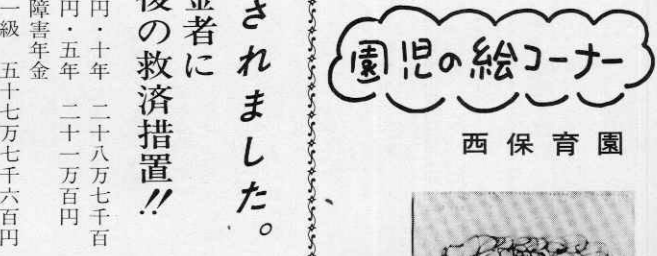 園児の絵コーナー
西保育園
されました。
金者に
後の救済措置!!
円・十年 二十八万七千百
円・五年 二十一万百円
障害年金
一級 五十七万七千六百円